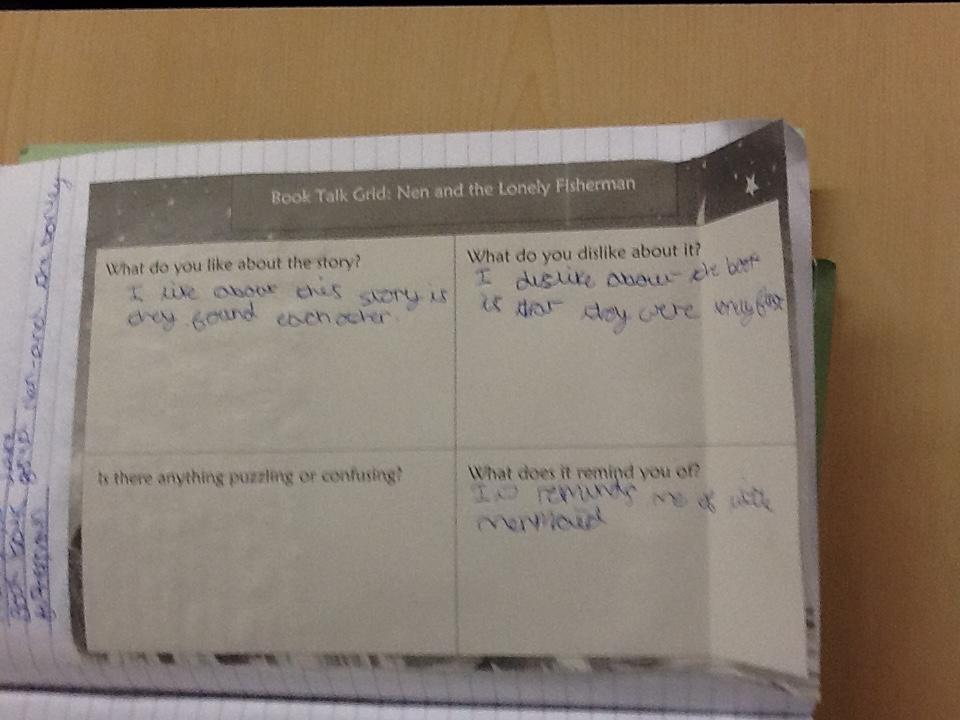 Book Talk Grid: Nen and the Lonely Fisherman
What do you like about the story?
I like about this story is
they found eachother.
What do you dislike about it?
I dislike about the book
is that they were
Is there anything puzzling or confusing?
What does it remind you of?
reminds me of little
mermaid
Nen and the